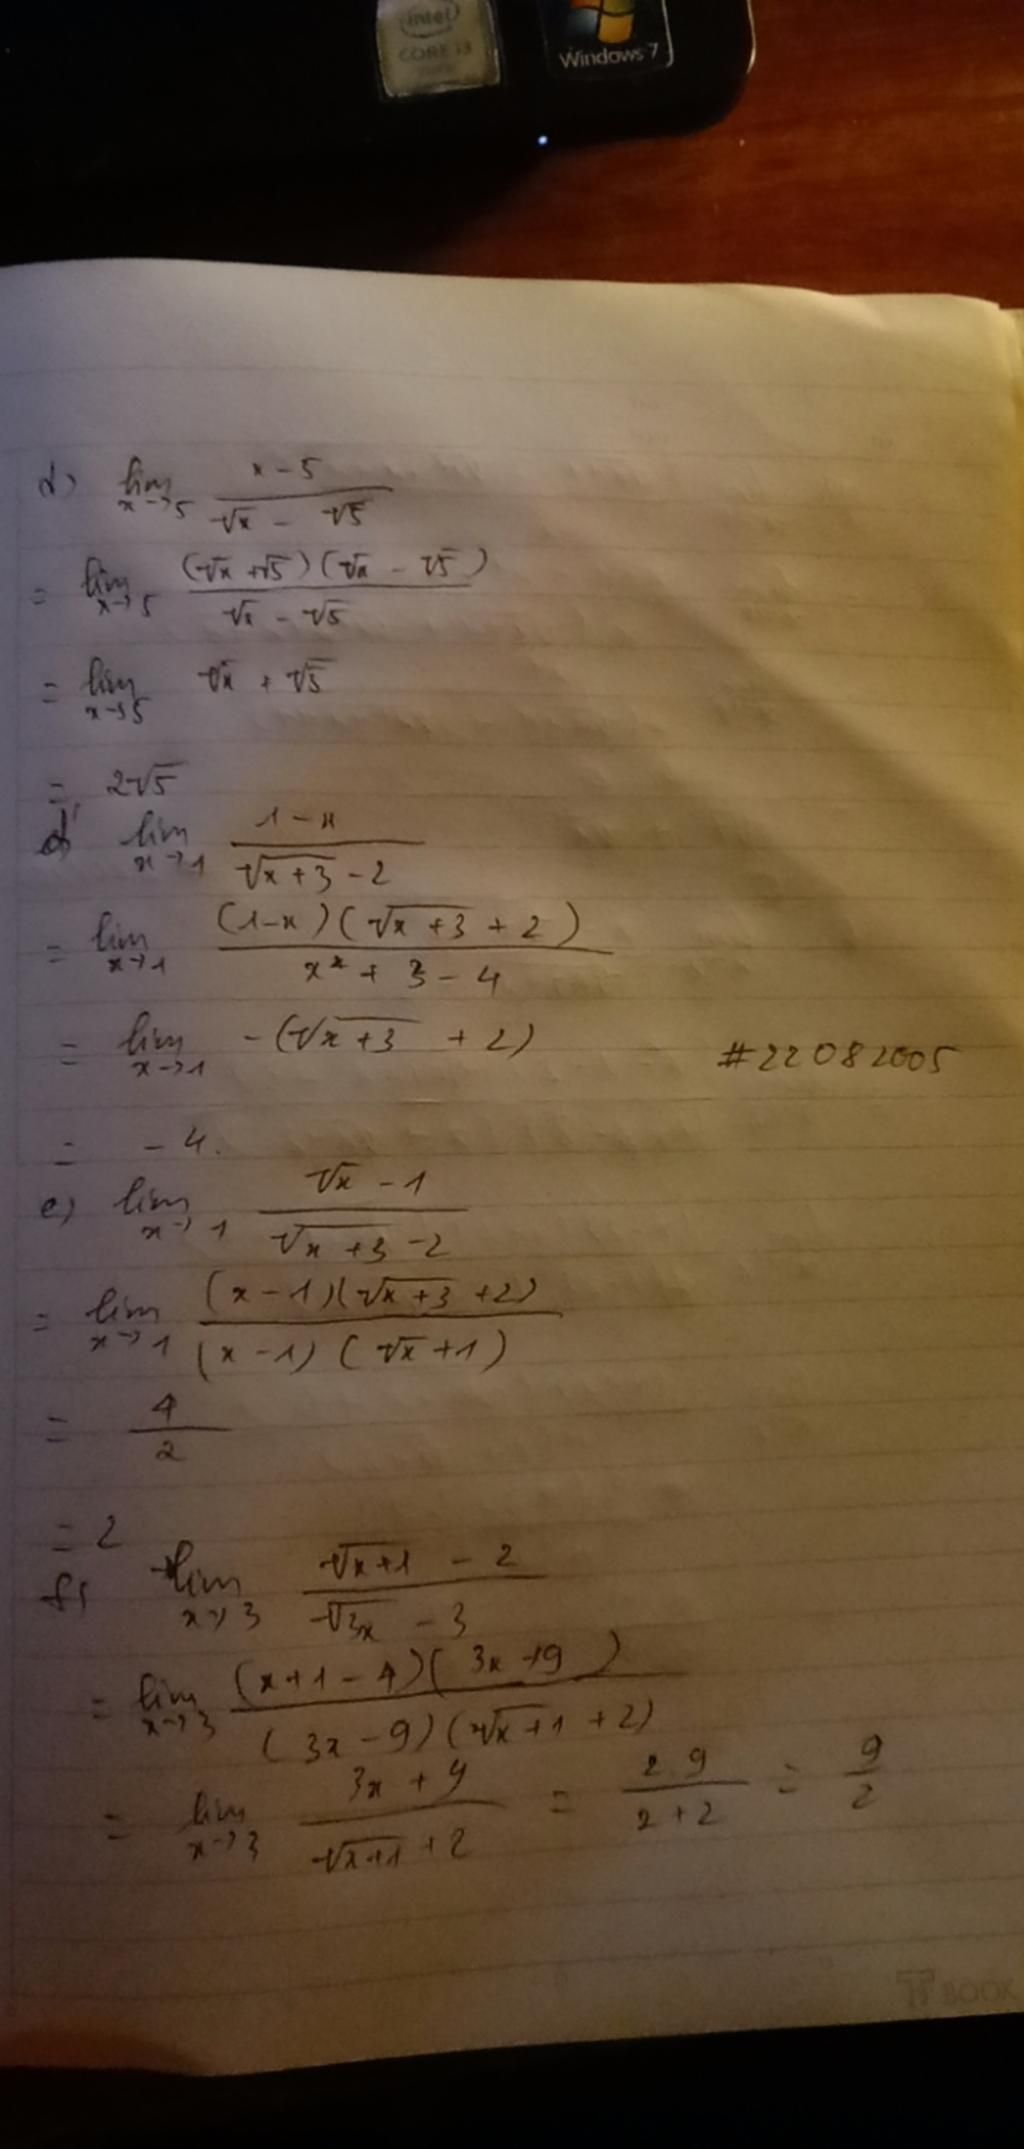 intel
CORE i3
Windows 7
d) lim x→5 (x - 5)/(√x - √5)
= lim x→5 ((√x + √5)(√x - √5))/(√x - √5)
= lim x→5 √x + √5
= 2√5
đ) lim x→1 (1 - x)/(√(x+3) - 2)
= lim x→1 ((1-x)(√(x+3) + 2))/(x + 3 - 4)
= lim x→1 -(√(x+3) + 2)
#22082005
= -4.
e) lim x→1 (√x - 1)/(√(x+3) - 2)
= lim x→1 ((x - 1)(√(x+3) + 2))/((x - 1)(√x + 1))
= 4/2
= 2
f) lim x→3 (√(x+1) - 2)/(√(3x) - 3)
= lim x→3 ((x+1-4)(3x+9))/((3x-9)(√(x+1) + 2))
= lim x→3 (3x + 9)/(√(x+1) + 2) = (2.9)/(2+2) = 9/2
BOOK